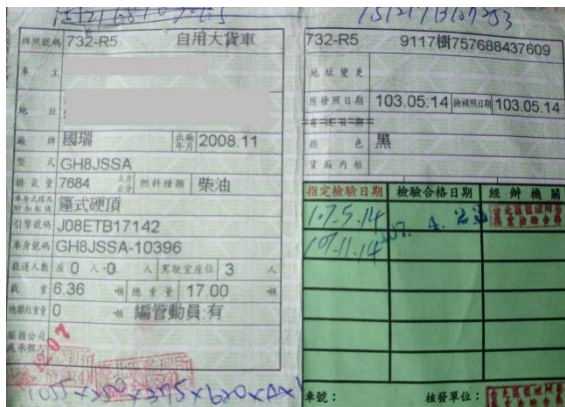 牌照號碼 732-R5 自用大貨車
車主
地址
廠牌 國瑞 出廠年月 2008.11
型式 GH8JSSA
排氣量 7684 立方公分 燃料種類 柴油
篷式硬頂
引擎號碼 J08ETB17142
車身號碼 GH8JSSA-10396
載運人數 座 0 人 0 人 駕駛室座位 3 人
載重 6.36 噸 總重量 17.00 噸
0 噸 編管動員:有
732-R5 9117樹757688437609
地址變更
原發照日期 103.05.14 換補照日期 103.05.14
顏色 黑
貨廂內框
指定檢驗日期 檢驗合格日期 經辦機關
107.5.14 107.4.23
107.11.14
車號: 核發單位: